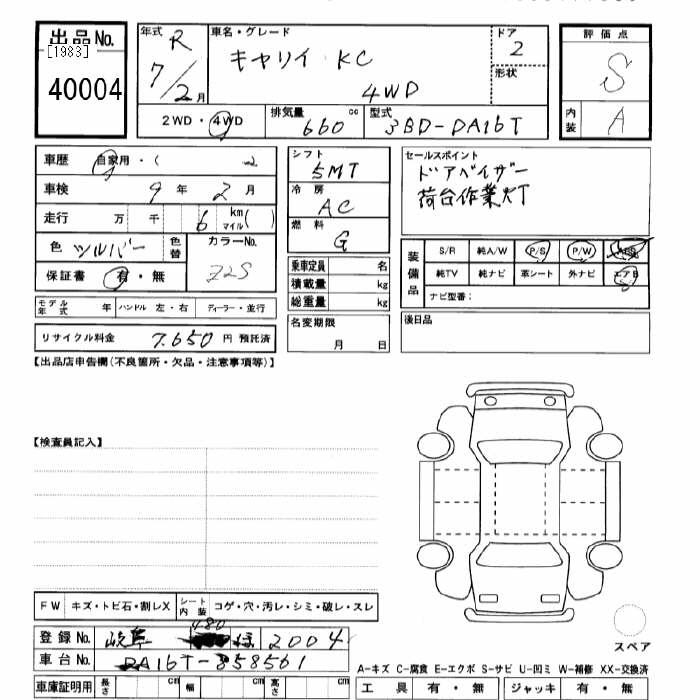 出品No.
[1983]
40004
年式 R
7/2月
車名・グレード
キャリイ KC
4WD
ドア
2
形状
評価点
S
内装 A
2WD・4WD
排気量 cc
660
型式
3BD-DA16T
車歴 自家用・(
車検 9年 2月
走行 万 千 6 km マイル( )
色 シルバー 色替
カラーNo.
Z2S
保証書 有・無
モデル年式 年 ハンドル 左・右 ディーラー・並行
リサイクル料金 7,650 円 預託済
シフト
5MT
冷房
AC
燃料
G
乗車定員 名
積載量 kg
総重量 kg
名変期限
月 日
セールスポイント
ドアバイザー
荷台作業灯
装備品
S/R 純A/W P/S P/W ABS
純TV 純ナビ 革シート 外ナビ エアB
ナビ型番:
後日品
【出品店申告欄(不良箇所・欠品・注意事項等)】
【検査員記入】
FW キズ・トビ石・割レX シート内装 コゲ・穴・汚レ・シミ・破レ・スレ
登録No. 岐阜 480 2004
車台No. DA16T-858561
車庫証明用 長さ cm 幅 cm 高さ cm
スペア
A-キズ C-腐食 E-エクボ S-サビ U-凹ミ W-補修 XX-交換済
工具 有・無 ジャッキ 有・無